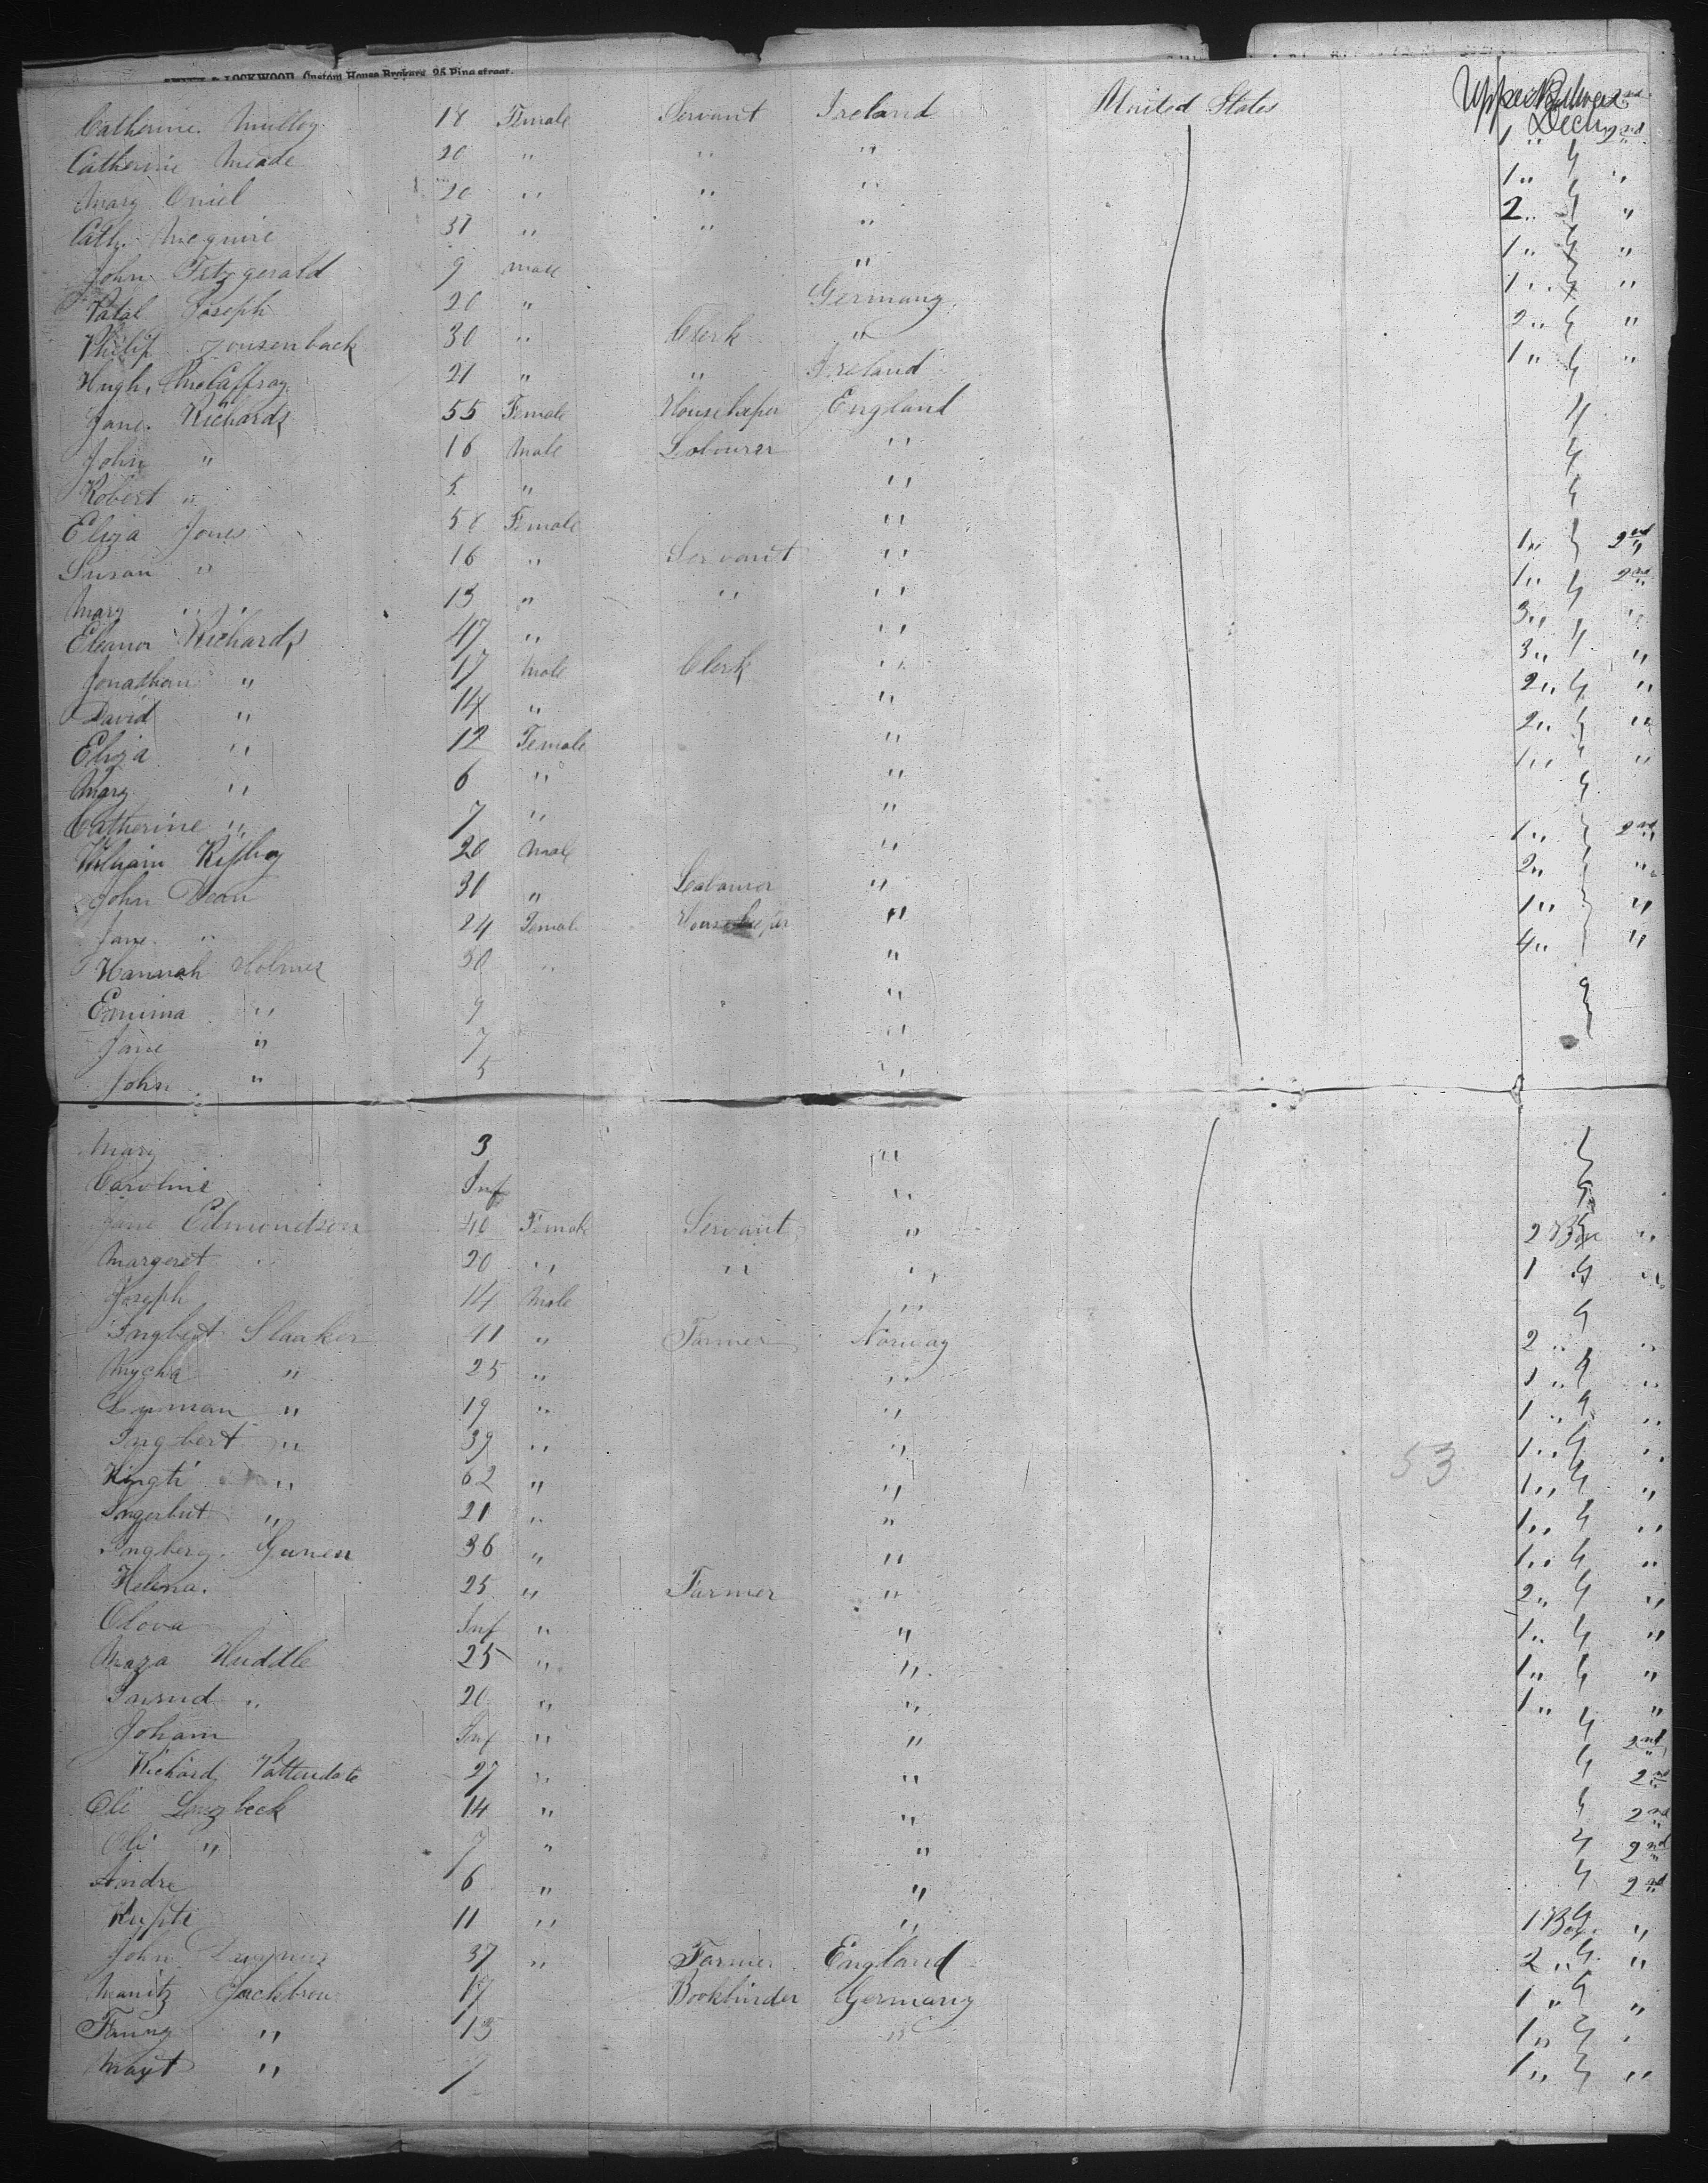 LOCKWOOD, Custom House Brokers, 25 Pine street.
Catherine Mulloy 18 Female Servant Ireland United States Upper Between Decks 2nd
Catherine Meade 20 " " " 1 " "
Mary Oniel 20 " " " 1 " "
Cath. Meguire 31 " " " 2 " "
John Fitzgerald 9 male " 1 " "
Natal Joseph 20 " Germany 1 " "
Philip 30 " Clerk " 2 " "
Hugh McCaffray 21 " " Ireland 1 " "
Jane Richards 55 Female Housekeper England
John " 16 Male Labourer "
Robert " 5 " "
Eliza Jones 50 Female " 1 " 2nd
Susan " 16 " Servant " 1 " 2nd
Mary " 13 " " " 3 " "
Eleanor Richards 47 " " 3 " "
Jonathan " 17 Male Clerk " 2 " "
David " 14 " " 2 " "
Eliza " 12 Female " 1 " "
Mary " 6 " "
Catherine " 7 " " 1 " 2nd
William Ripley 20 Male " 2 " "
John Dean 31 " Labourer " 1 " "
Jane " 24 Female Housekeeper " 4 " "
Hannah Holmes 30 " "
Emima " 9 "
Jane " 7 "
John " 5 "
Mary 3 "
Caroline Inf "
Jane Edmondson 40 Female Servant " 2 Box "
Margeret 20 " " " 1 "
Joseph 14 Male "
Ingbert Slaaker 41 " Farmer Norway 2 " "
Mycha " 25 " " 1 " "
Luman " 19 " " 1 " "
Ingbert " 39 " " 1 " "
53
Kingti " 62 " " 1 " "
Ingerbut " 21 " " 1 " "
Ingberg Gunen 36 " " 1 " "
Helena 25 " Farmer " 2 " "
Olova Inf " " 1 " "
Maza Huddle 25 " " 1 " "
" 20 " " 1 " "
Joham Inf " " 2nd
Richard Pattendale 27 " " 2nd
Oli Longbeck 14 " " 2nd
Oli " 7 " " 2nd
Andre 6 " " 2nd
11 " " 1 Box "
John 37 " Farmer England 2 " "
Manitz Jackbren 17 Bookbinder Germany 1 " "
Fanny " 13 " 1 "
Mayt " 7 1 " "